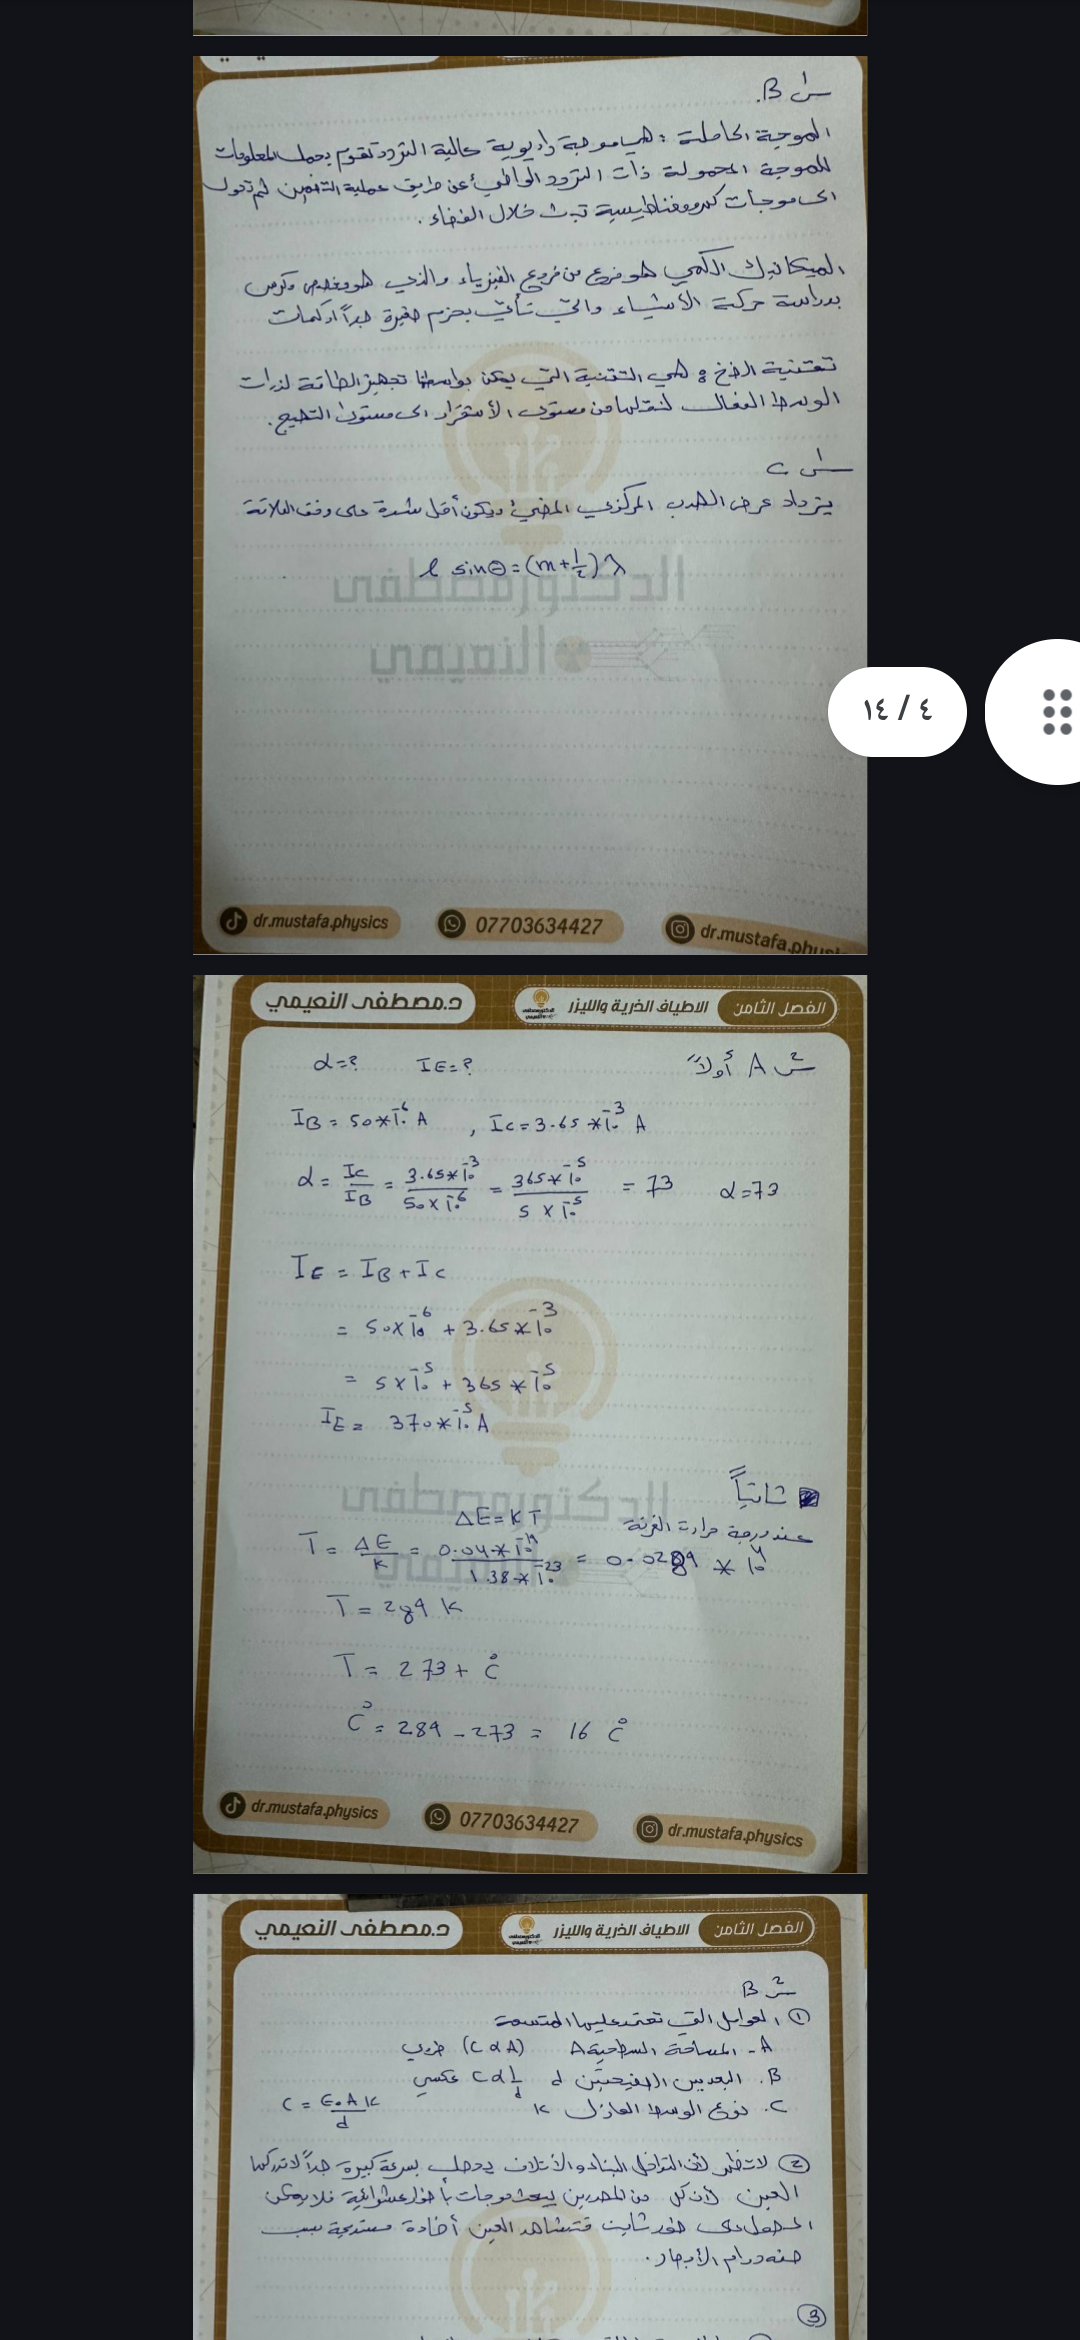 س١ B.
الموجة الحاملة : هي موجة راديوية عالية التردد تقوم بحمل المعلومات
للموجة المحمولة ذات التردد الواطئ عن طريق عملية التضمين ثم تحول
الى موجات كهرومغناطيسية تبث خلال الفضاء .
الميكانيك الكمي هو فرع من فروع الفيزياء والذي هو مخصص وكرس
بدراسة حركة الأشياء والتي تأتي بحزم صغيرة جداً او كمات
تقتنية الضخ : هي التقنية التي يمكن بواسطتها تجهيز الطاقة لذرات
الوسط الفعال لنقلها من مستوى الأستقرار الى مستوى التهيج .
س١ C
يزداد عرض الهدب المركزي المضيئ ويكون أقل شدة على وفق العلاقة
l sinΘ = (m+½) λ
الدكتور مصطفى
النعيمي
١٤ / ٤
dr.mustafa.physics
07703634427
dr.mustafa.physi
د.مصطفى النعيمي
الاطياف الذرية والليزر
الفصل الثامن
س٢ A أولاً
α=? IE=?
IB = 50*10⁻⁶ A , Ic = 3.65 *10⁻³ A
α = Ic/IB = 3.65*10⁻³/50×10⁻⁶ = 365*10⁻⁵/5×10⁻⁵ = 73 α=73
IE = IB + Ic
= 50×10⁻⁶ + 3.65*10⁻³
= 5×10⁻⁵ + 365*10⁻⁵
IE = 370*10⁻⁵ A
ثانياً
عند درجة حرارة الغرفة
ΔE = KT
T = ΔE/K = 0.04*10⁻¹⁹/1.38*10⁻²³ = 0.0289 * 10⁴
T = 289 K
T = 273 + C°
C° = 289 - 273 = 16 C°
الدكتور مصطفى
النعيمي
dr.mustafa.physics
07703634427
dr.mustafa.physics
د.مصطفى النعيمي
الاطياف الذرية والليزر
الفصل الثامن
س٢ B
① العوامل التي تعتمد عليها المتسعة
A - المساحة السطحية A (C α A) طردي
B. البعد بين الصفيحتين d C α 1/d عكسي
C. نوع الوسط العازل K C = ε₀AK/d
② لا تظهر لأن التداخل البناء والأتلاف يحصل بسرعة كبيرة جداً لا تدركها
العين لأن كل من المصدرين يبعث موجات بأطوار عشوائية فلا يمكن
الحصول على طور ثابت فتشاهد العين أضاءة مستديمة بسبب
صفة دوام الأبصار .
③